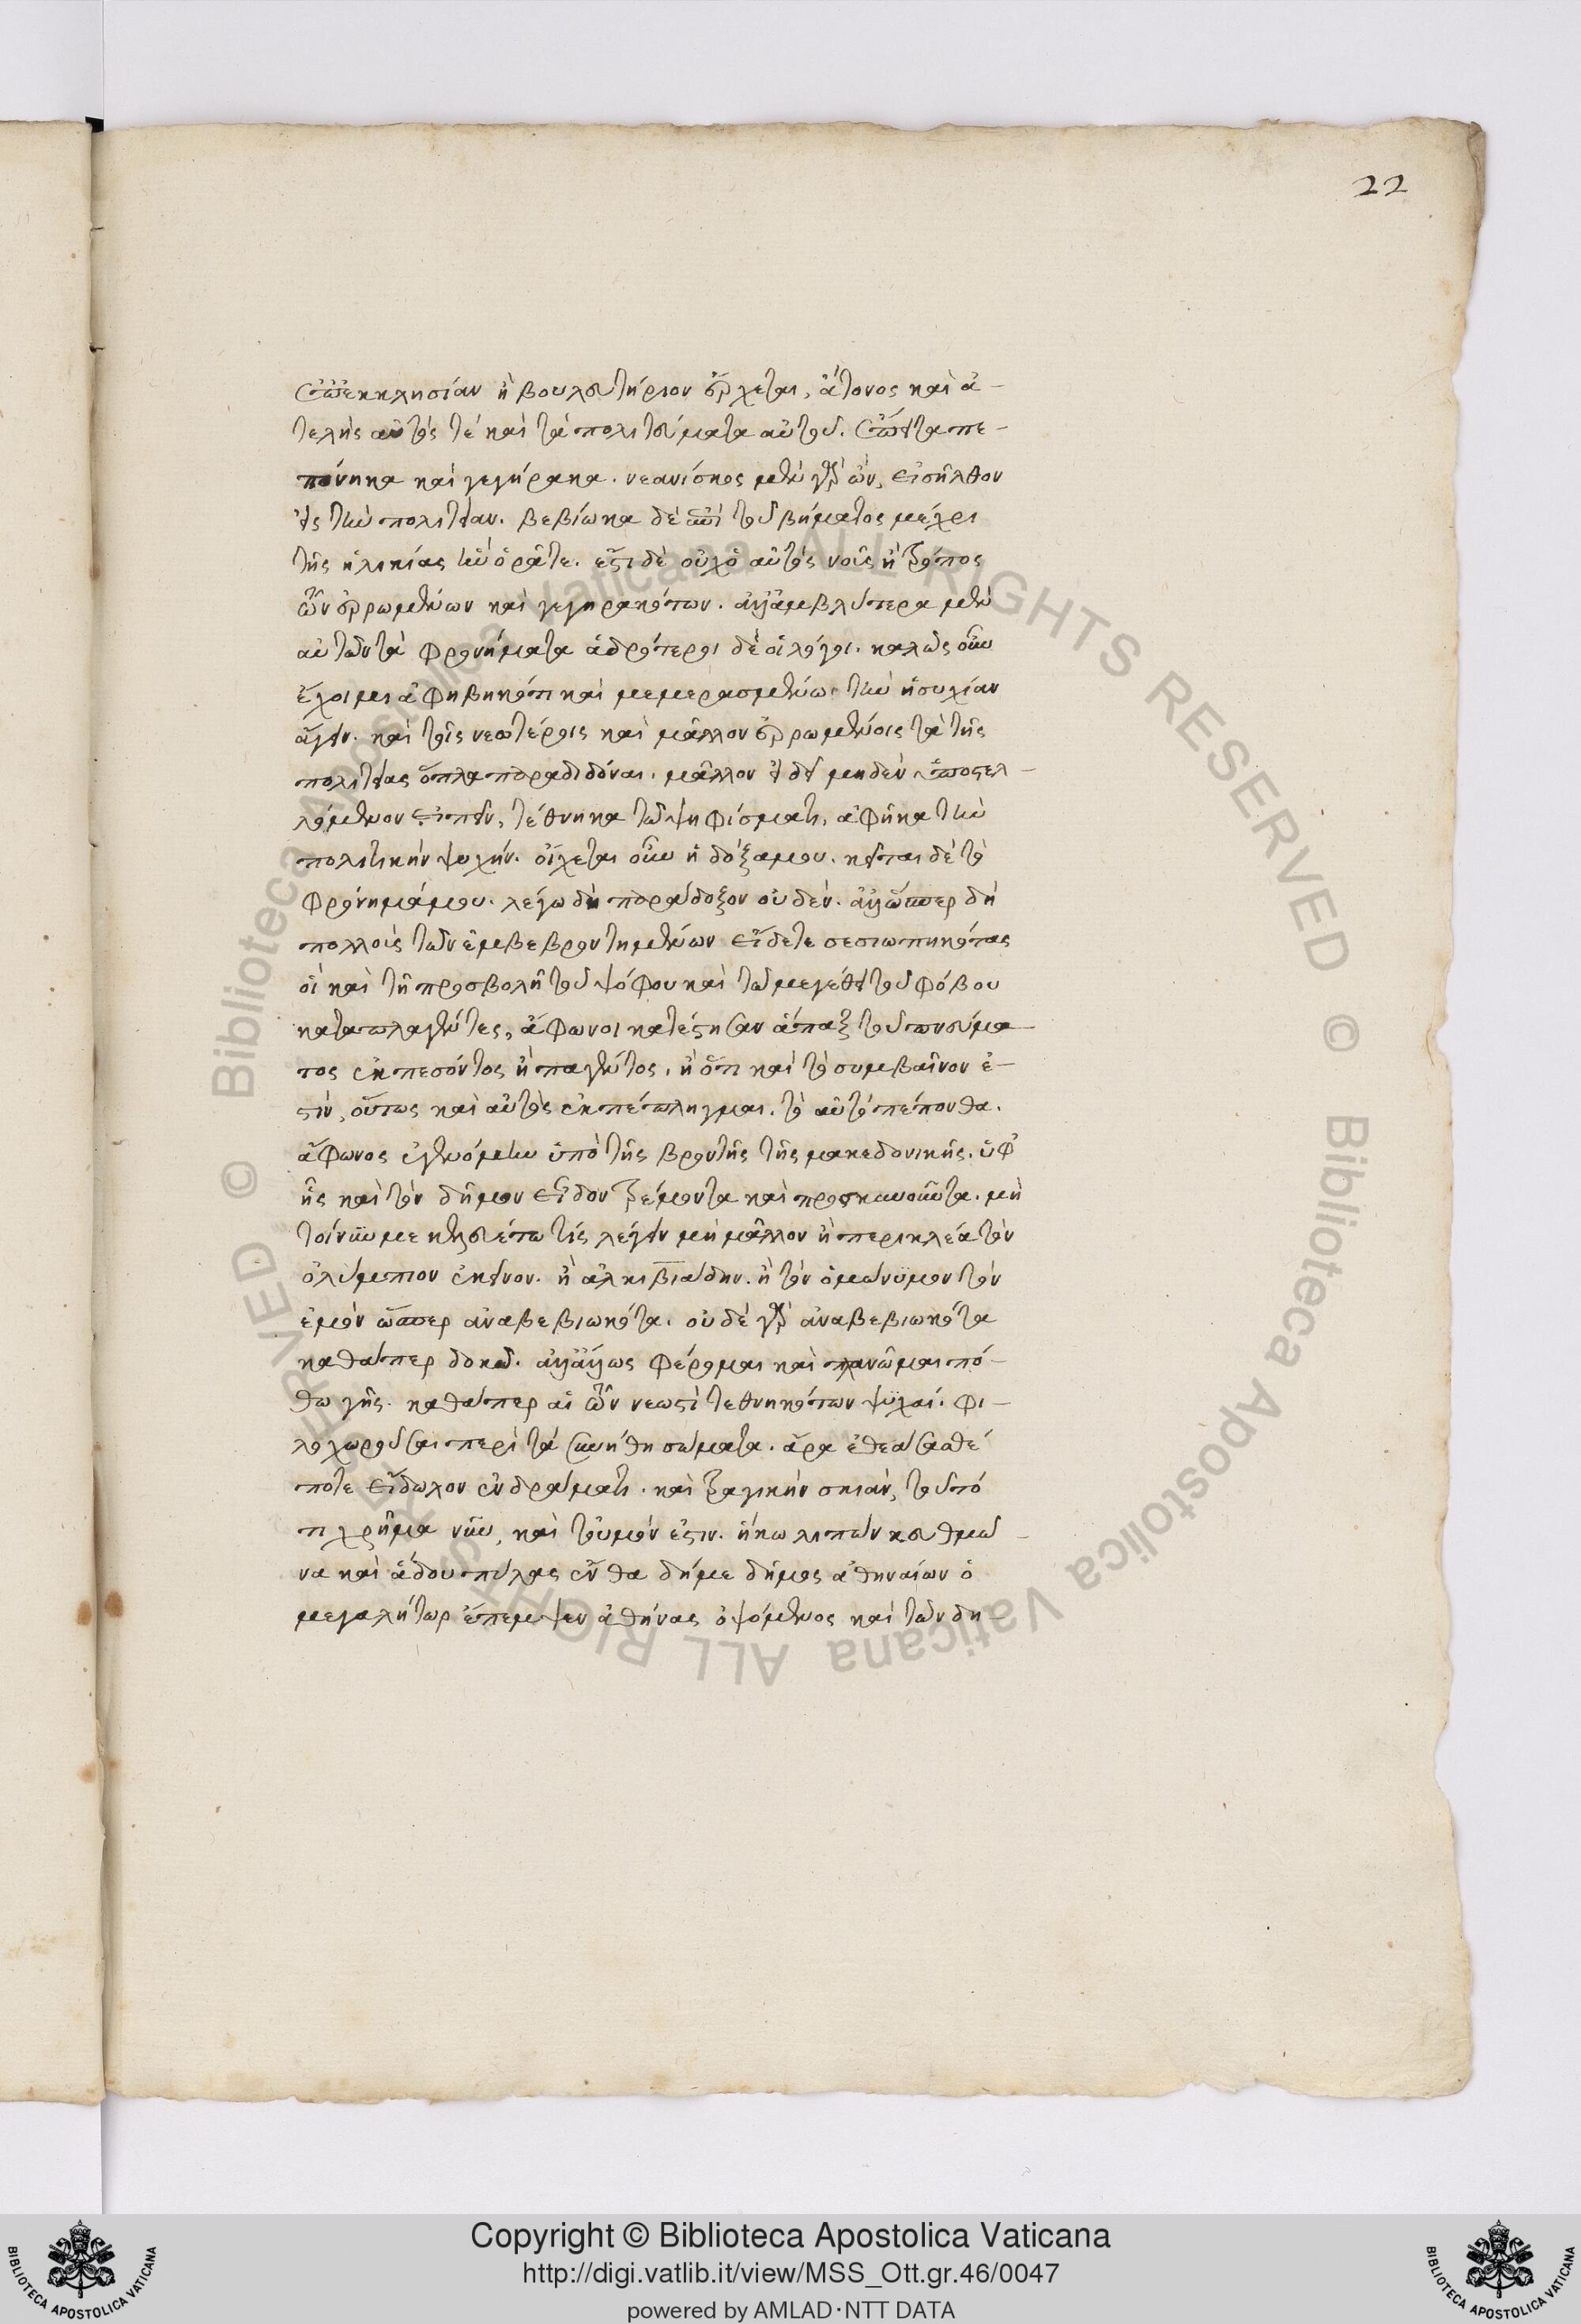 22
ἐπ' ἐκκλησίαν ἢ βουλευτήριον ἔρχεται, ἄτονος καὶ ἀ-
τελὴς αὐτός τέ καὶ τὰ πολιτεύματα αὐτοῦ. ἐπεὶ τα πε-
πόνηκα καὶ γεγήρακα. νεανίσκος μὲν γὰρ ὢν, εἰσῆλθον
εἰς τὴν πολιτείαν. βεβίωκα δὲ ἐπὶ τοῦ βήματος μέχρι
τῆς ἡλικίας ἣν ὁρᾶτε. ἔστι δὲ οὐχ ὁ αὐτὸς νοῦς ἢ τρόπος
τῶν ἐρρωμένων καὶ γεγηρακότων. ἀλλ' ἀμβλύτερα μὲν
αὐτῶν τὰ φρονήματα ἁδρότεροι δὲ οἱ λόγοι. καλῶς οὖν
ἔχοι μοι ἀφηβηκότι καὶ μεμερασμένως τὴν ἡσυχίαν
ἄγειν. καὶ τοῖς νεωτέροις καὶ μᾶλλον ἐρρωμένοις τὰ τῆς
πολιτείας ὅπλα παραδιδόναι. μᾶλλον εἰ δεῖ μηδὲν ὑποστελ-
λόμενον εἰπεῖν, τέθνηκα τῷ ψηφίσματι, ἀφῆκα τὴν
πολιτικὴν ψυχήν. οἴχεται οὖν ἡ δόξα μου. κεῖται δὲ τὸ
φρόνημά μου. λέγω δὴ παράδοξον οὐδέν. ἀλλ' ὥσπερ δὴ
πολλοὺς τῶν ἐμβεβροντημένων εἴδετε σεσιωπηκότας
οἳ καὶ τῇ προσβολῇ τοῦ ψόφου καὶ τῷ μεγέθει τοῦ φόβου
καταπλαγέντες, ἄφωνοι κατέστησαν ἅπαξ τοῦ πνεύμα-
τος ἐκπεσόντος ἢ παγέντος, ἢ ὅτι καὶ τὸ συμβαῖνον ἐ-
στίν, οὕτως καὶ αὐτὸς ἐκπέπληγμαι. τὸ αὐτὸ πέπονθα.
ἄφωνος ἐγενόμην ὑπὸ τῆς βροντῆς τῆς μακεδονικῆς. ὑφ'
ἧς καὶ τὸν δῆμον εἶδον τρέμοντα καὶ προσκυνοῦντα. μὴ
τοίνυν με κελευέτω τίς λέγειν μὴ μᾶλλον ἢ περικλέα τὸν
ὀλύμπιον ἐκεῖνον. ἢ ἀλκιβιάδην. ἢ τὸν ὁμώνυμον τὸν
ἐμὸν ὥσπερ ἀναβεβιωκότα. οὐδὲ γὰρ ἀναβεβιωκότα
καθάπερ δοκῶ. ἀλλ' ἄλλως φέρομαι καὶ πλανῶμαι πό-
θω γῆς. καθάπερ αἱ τῶν νεωστὶ τεθνηκότων ψυχαί. φι-
λοχωροῦσαι περὶ τὰ συνήθη σώματα. ἆρα ἐθεάσασθέ
ποτε εἴδωλον ἐν δράματι. καὶ τραγικὴν σκιάν, τοῦτό
τι χρῆμα νῦν, καὶ τοὐμόν ἐστιν. ἥκω λιπὼν κευθμῶ-
να καὶ ἅδου πύλας ἔνθα δή με δῆμος ἀθηναίων ὁ
μεγαλήτωρ ἔπεμψεν ἀθήνας ὀψόμενος καὶ τῶν δη-
Copyright © Biblioteca Apostolica Vaticana
http://digi.vatlib.it/view/MSS_Ott.gr.46/0047
powered by AMLAD·NTT DATA